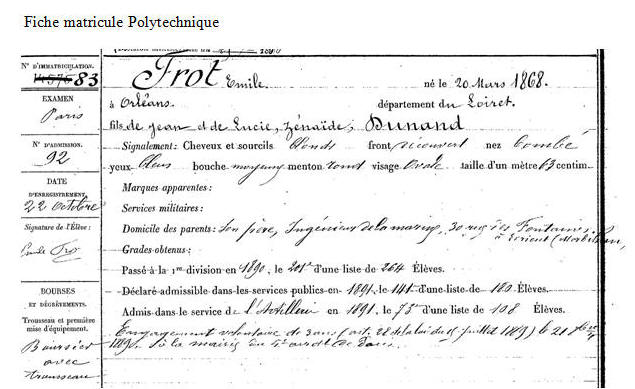 Fiche matricule Polytechnique
N° D'IMMATRICULATION.
83
EXAMEN
Paris
N° D'ADMISSION.
92
DATE
D'ENREGISTREMENT.
22 Octobre
Signature de l'Élève:
Emile Frot
BOURSES
ET DÉGRÈVEMENTS.
Trousseau et première
mise d'équipement.
Boursier
avec
trousseau
Frot Emile né le 20 Mars 1868.
à Orléans. département du Loiret.
fils de Jean et de Lucie, Zénaïde, Dunand
Signalement: Cheveux et sourcils blonds front découvert nez bombé
yeux bleus bouche moyenne menton rond visage Ovale taille d'un mètre 63 centim.
Marques apparentes:
Services militaires:
Domicile des parents: Son père, Ingénieur de la marine, 30 rue des Fontaines
à Lorient (Morbihan)
Grades obtenus:
Passé à la 1re division en 1890, le 201e d'une liste de 264 Élèves.
Déclaré admissible dans les services publics en 1891. le 141e d'une liste de 180 Élèves.
Admis dans le service de l'Artillerie en 1891. le 75e d'une liste de 108 Élèves.
Engagement volontaire de 3 ans (art. 28 de la loi du 15 juillet 1889) le 21
à la mairie du 5e arrdt de Paris